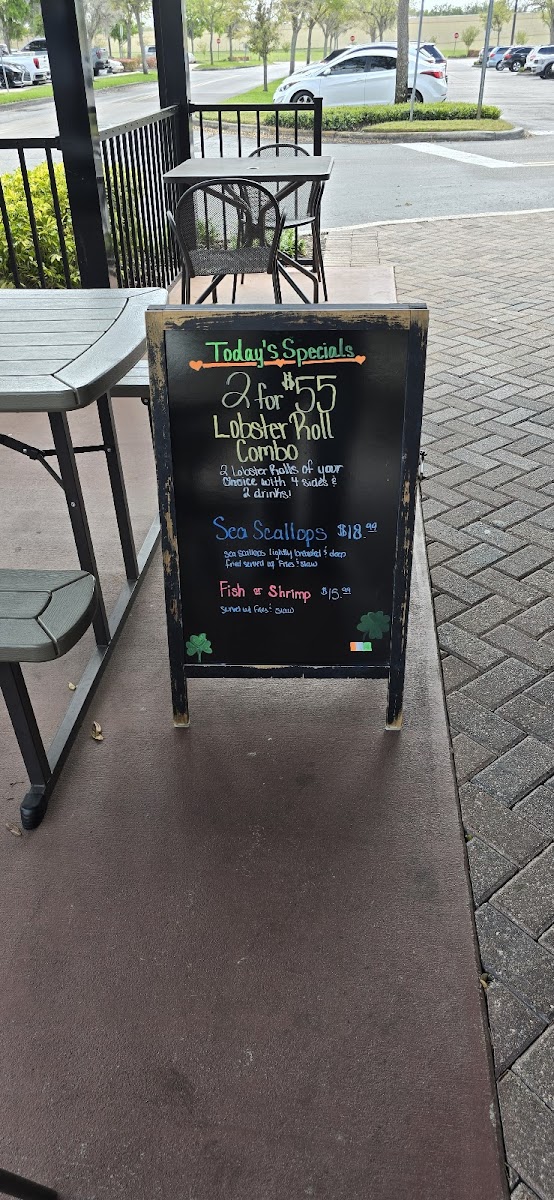 Today's Specials
2 for $55
Lobster Roll
Combo
2 Lobster Rolls of your
choice with 4 sides &
2 drinks!
Sea Scallops $18.99
Sea Scallops lightly breaded & deep
fried served w/ Fries & slaw
Fish or Shrimp $15.99
served w/ Fries & slaw